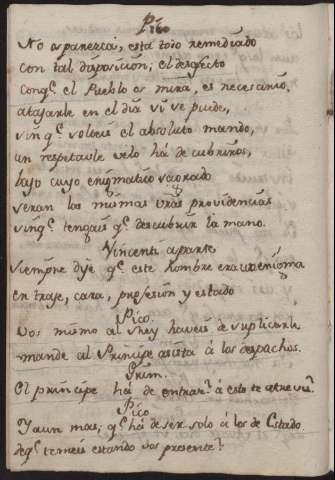 Pico
No os paresca, está todo remediado
con tal disposicion; el desafecto
conq.e el Pueblo os mira, es necesario,
atajarle en el dia si se puede,
sinq.e solteis el absoluto mando,
un respetable velo há de cubriros,
bajo cuyo enigmatico sagrado
seran las mismas vras providencias
sinq.e tengais q.e descubrir la mano.
Vincenti aparte
siempre dije q.e este hombre era un enigma
en traje, cara, profesion y estado
Pico.
Vos mismo al Rey haveis de suplicarle
mande al Principe asista á los despachos.
Prim.
El principe há de entrar? á esto te atreves?
Pico
Y aun mas; q.e há de ser solo á los de Estado
deq.e temeis estando vos presente?